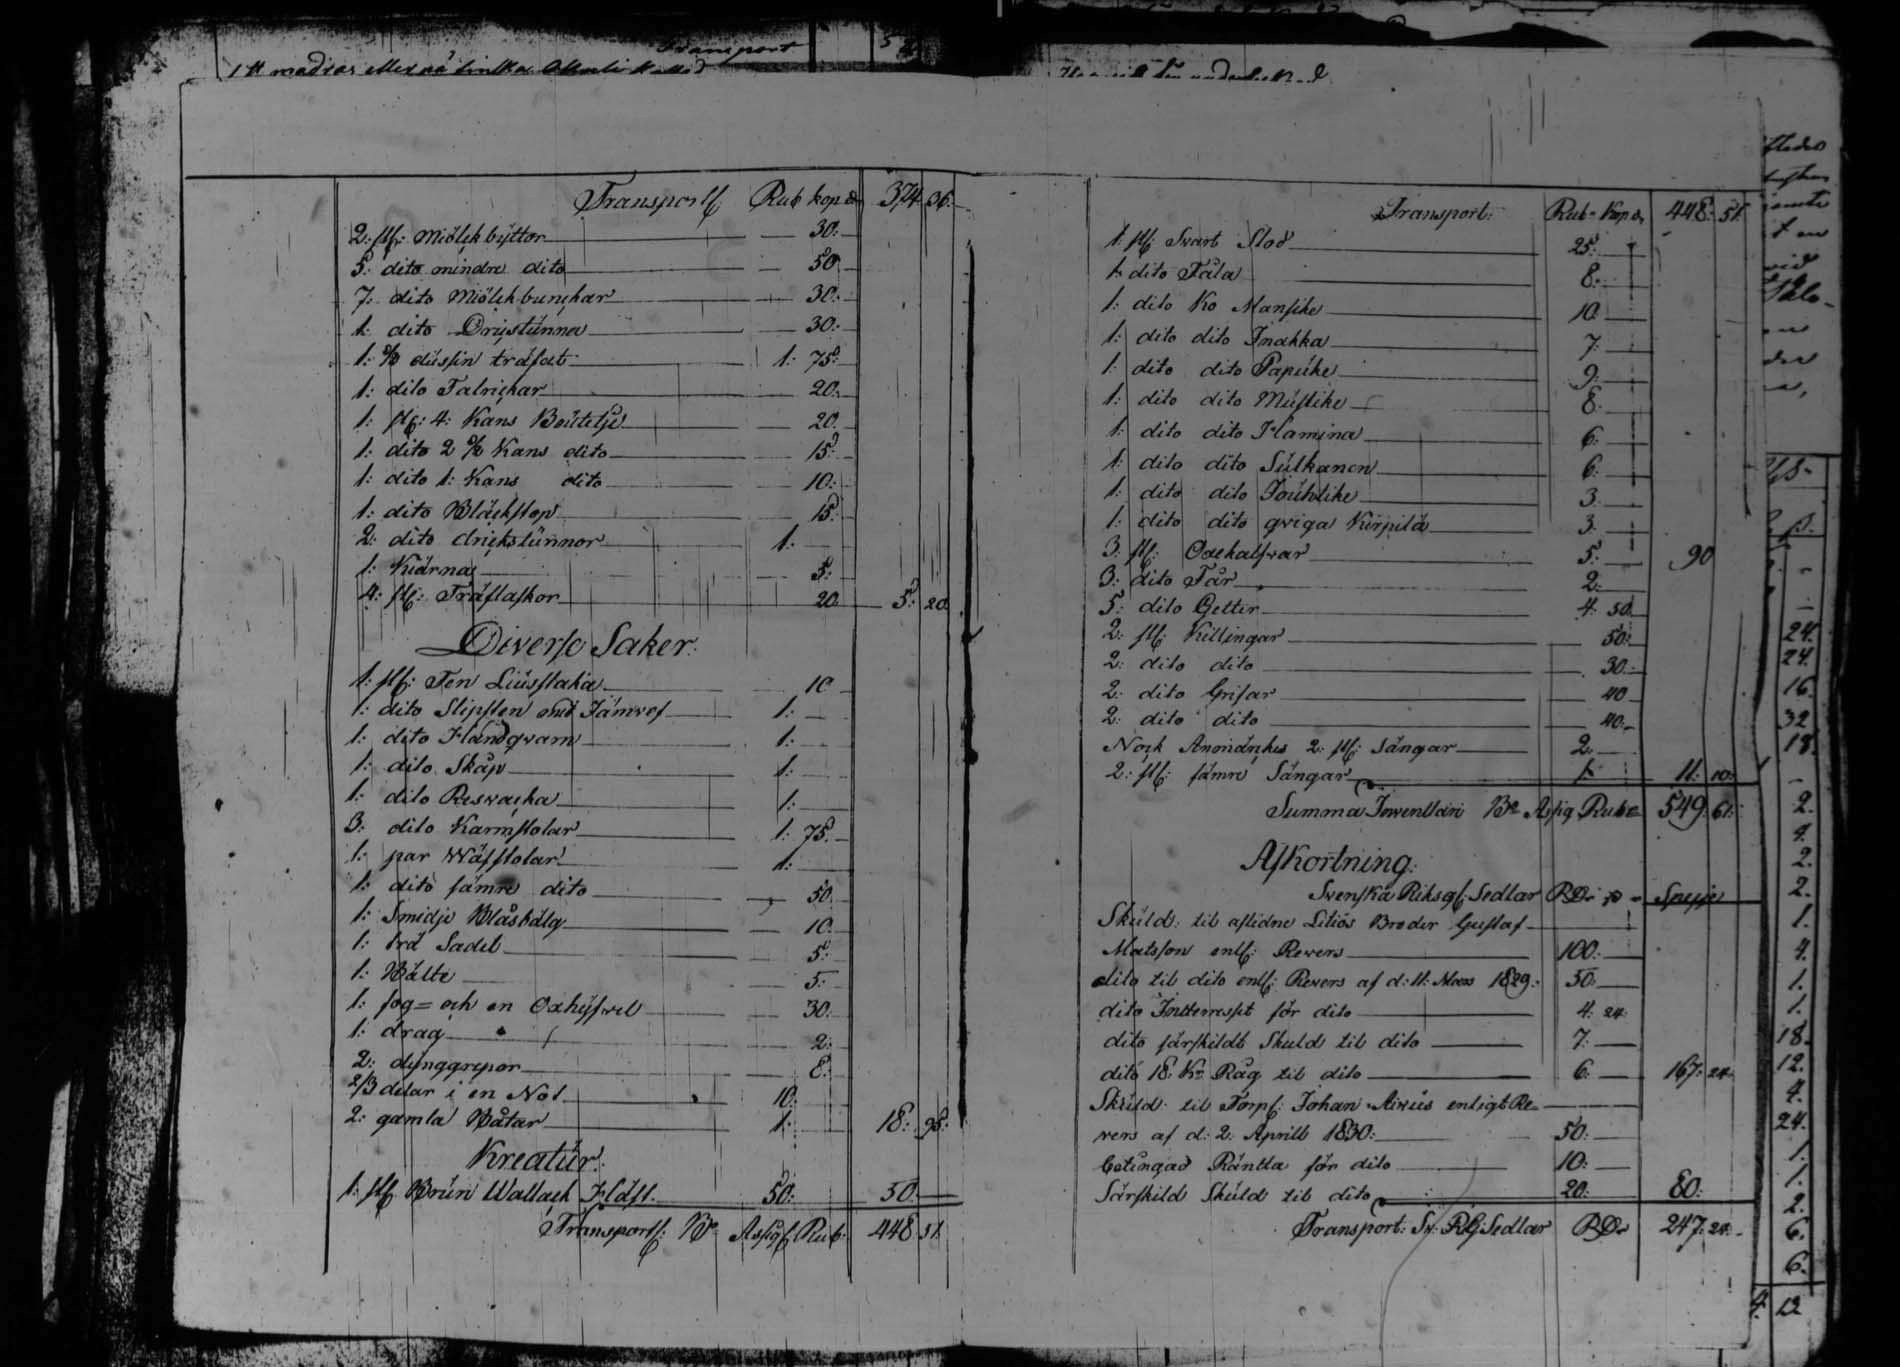 Transport
Transport: Rub kop: 374. 36.
2: st: Miölckbyttor 30:
5: dito mindre dito 50
7: dito Miölckbunckar 30:
1: dito Dristunna 30:
1: ½ dussin träfat 1: 75:
1: dito Talrickar 20:
1: st: 4: Kans Boutelje 20
1: dito 2 ½ Kans dito 15:
1: dito 1: Kans dito 10:
1: dito Bläckstop 15
2: dito drickstunnor 1:
1: Kiärna 5:
4: st: Träflaskor 20 5: 20
Diverse Saker:
1: st: Ten Liusstaka 10
1: dito Slipsten med Järnvef 1:
1: dito Handqvarn 1:
1: dito Skåp 1:
1: dito Resvacka 1:
3: dito Karmstolar 1: 75:
1: par Wäfstolar 1:
1: dito sämre dito 50
1: Smidje Blåsbälg 10
1: brå Sadel 5:
1: Bälte 5:
1: fog= och en Oxhyfvel 30:
1: drag 2:
2: dynggrepor 8:
2/3 delar i en Not 10:
2: gamla Båtar 1: 18: 95:
Kreatur:
1: st Brun Wallach Häst 50: 50:
Transport: Bco Assigt Rub: 448 51
Transport: Rub: Kop: 448: 51
1: st: Svart Stod 25:
1: dito Fåla 8:
1: dito Ko Mansike 10
1: dito dito Inakka 7:
1: dito dito Papuke 9:
1: dito dito Mustike 8:
1: dito dito Hamina 6:
1: dito dito Sulkanen 6:
1: dito dito Jouhtike 3:
1: dito dito qviga Kirpila 3:
3: st: Oxekalfvar 5: 90
3: dito Får 2:
5: dito Getter 4: 50
2: st: Killingar 50:
2: dito dito 30:
2: dito Grisar 40
2: dito dito 40:
Nock 2: st: Sängar 2:
2: st: sämre Sängar 1: 11: 10:
Summa Inventari Bco Assig Rub: 549: 61:
Afkortning:
Svenska Riksg: Sedlar RD: Spesje
Skuld: til aflidne Litiös Broder Gustaf
Matsson enl: Revers 100:
dito til dito enl: Revers af d: 11: Mars 1829: 50:
dito Intteresset för dito 4: 24:
dito särskildt Skuld til dito 7:
dito 18: Kr Råg til dito 6: 167: 24:
Skuld: til Torp: Johan enligt Re-
vers af d: 2: Aprill 1830: 50:
betingad Ränta för dito 10:
Särskild Skuld til dito 20: 80:
Transport: Sv: RG Sedlar RD: 247: 24:
24.
24.
16.
32
18.
2.
4.
2.
2.
1.
4.
1.
1.
18.
12.
4.
24.
1.
1.
2.
6.
6.
4. 12